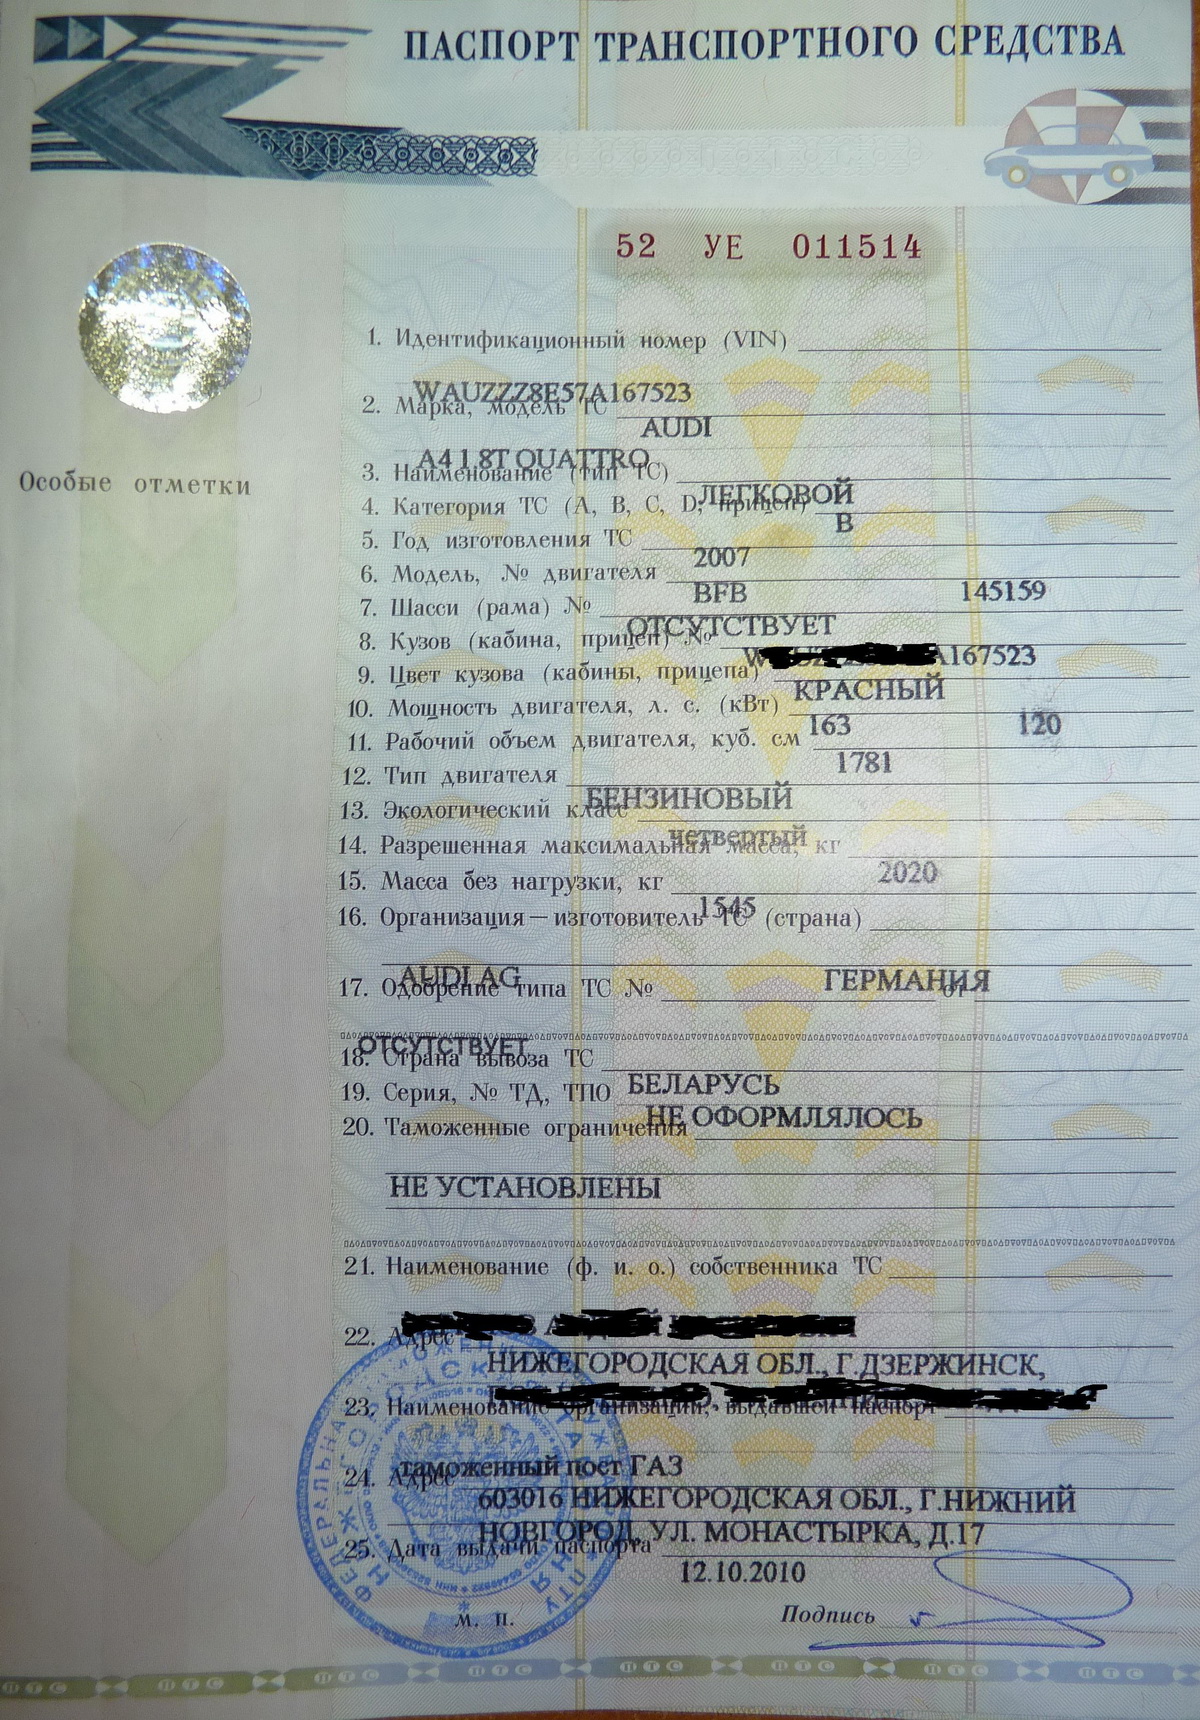 ПАСПОРТ ТРАНСПОРТНОГО СРЕДСТВА
52 УЕ 011514
Особые отметки
1. Идентификационный номер (VIN)
WAUZZZ8E57A167523
2. Марка, модель ТС
AUDI
A4 1.8T QUATTRO
3. Наименование (тип ТС)
ЛЕГКОВОЙ
4. Категория ТС (А, В, С, D, прицеп)
В
5. Год изготовления ТС
2007
6. Модель, № двигателя
BFB 145159
7. Шасси (рама) №
ОТСУТСТВУЕТ
8. Кузов (кабина, прицеп) №
A167523
9. Цвет кузова (кабины, прицепа)
КРАСНЫЙ
10. Мощность двигателя, л. с. (кВт)
163 120
11. Рабочий объем двигателя, куб. см
1781
12. Тип двигателя
БЕНЗИНОВЫЙ
13. Экологический класс
четвертый
14. Разрешенная максимальная масса, кг
2020
15. Масса без нагрузки, кг
1545
16. Организация — изготовитель ТС (страна)
AUDI AG ГЕРМАНИЯ
17. Одобрение типа ТС № от
ОТСУТСТВУЕТ
18. Страна вывоза ТС
БЕЛАРУСЬ
19. Серия, № ТД, ТПО
НЕ ОФОРМЛЯЛОСЬ
20. Таможенные ограничения
НЕ УСТАНОВЛЕНЫ
21. Наименование (ф. и. о.) собственника ТС
22. Адрес
НИЖЕГОРОДСКАЯ ОБЛ., Г.ДЗЕРЖИНСК,
23. Наименование организации, выдавшей паспорт
таможенный пост ГАЗ
24. Адрес
603016 НИЖЕГОРОДСКАЯ ОБЛ., Г.НИЖНИЙ
НОВГОРОД, УЛ. МОНАСТЫРКА, Д.17
25. Дата выдачи паспорта
12.10.2010
м. п. Подпись
ПТС ПТС ПТС ПТС ПТС ПТС ПТС